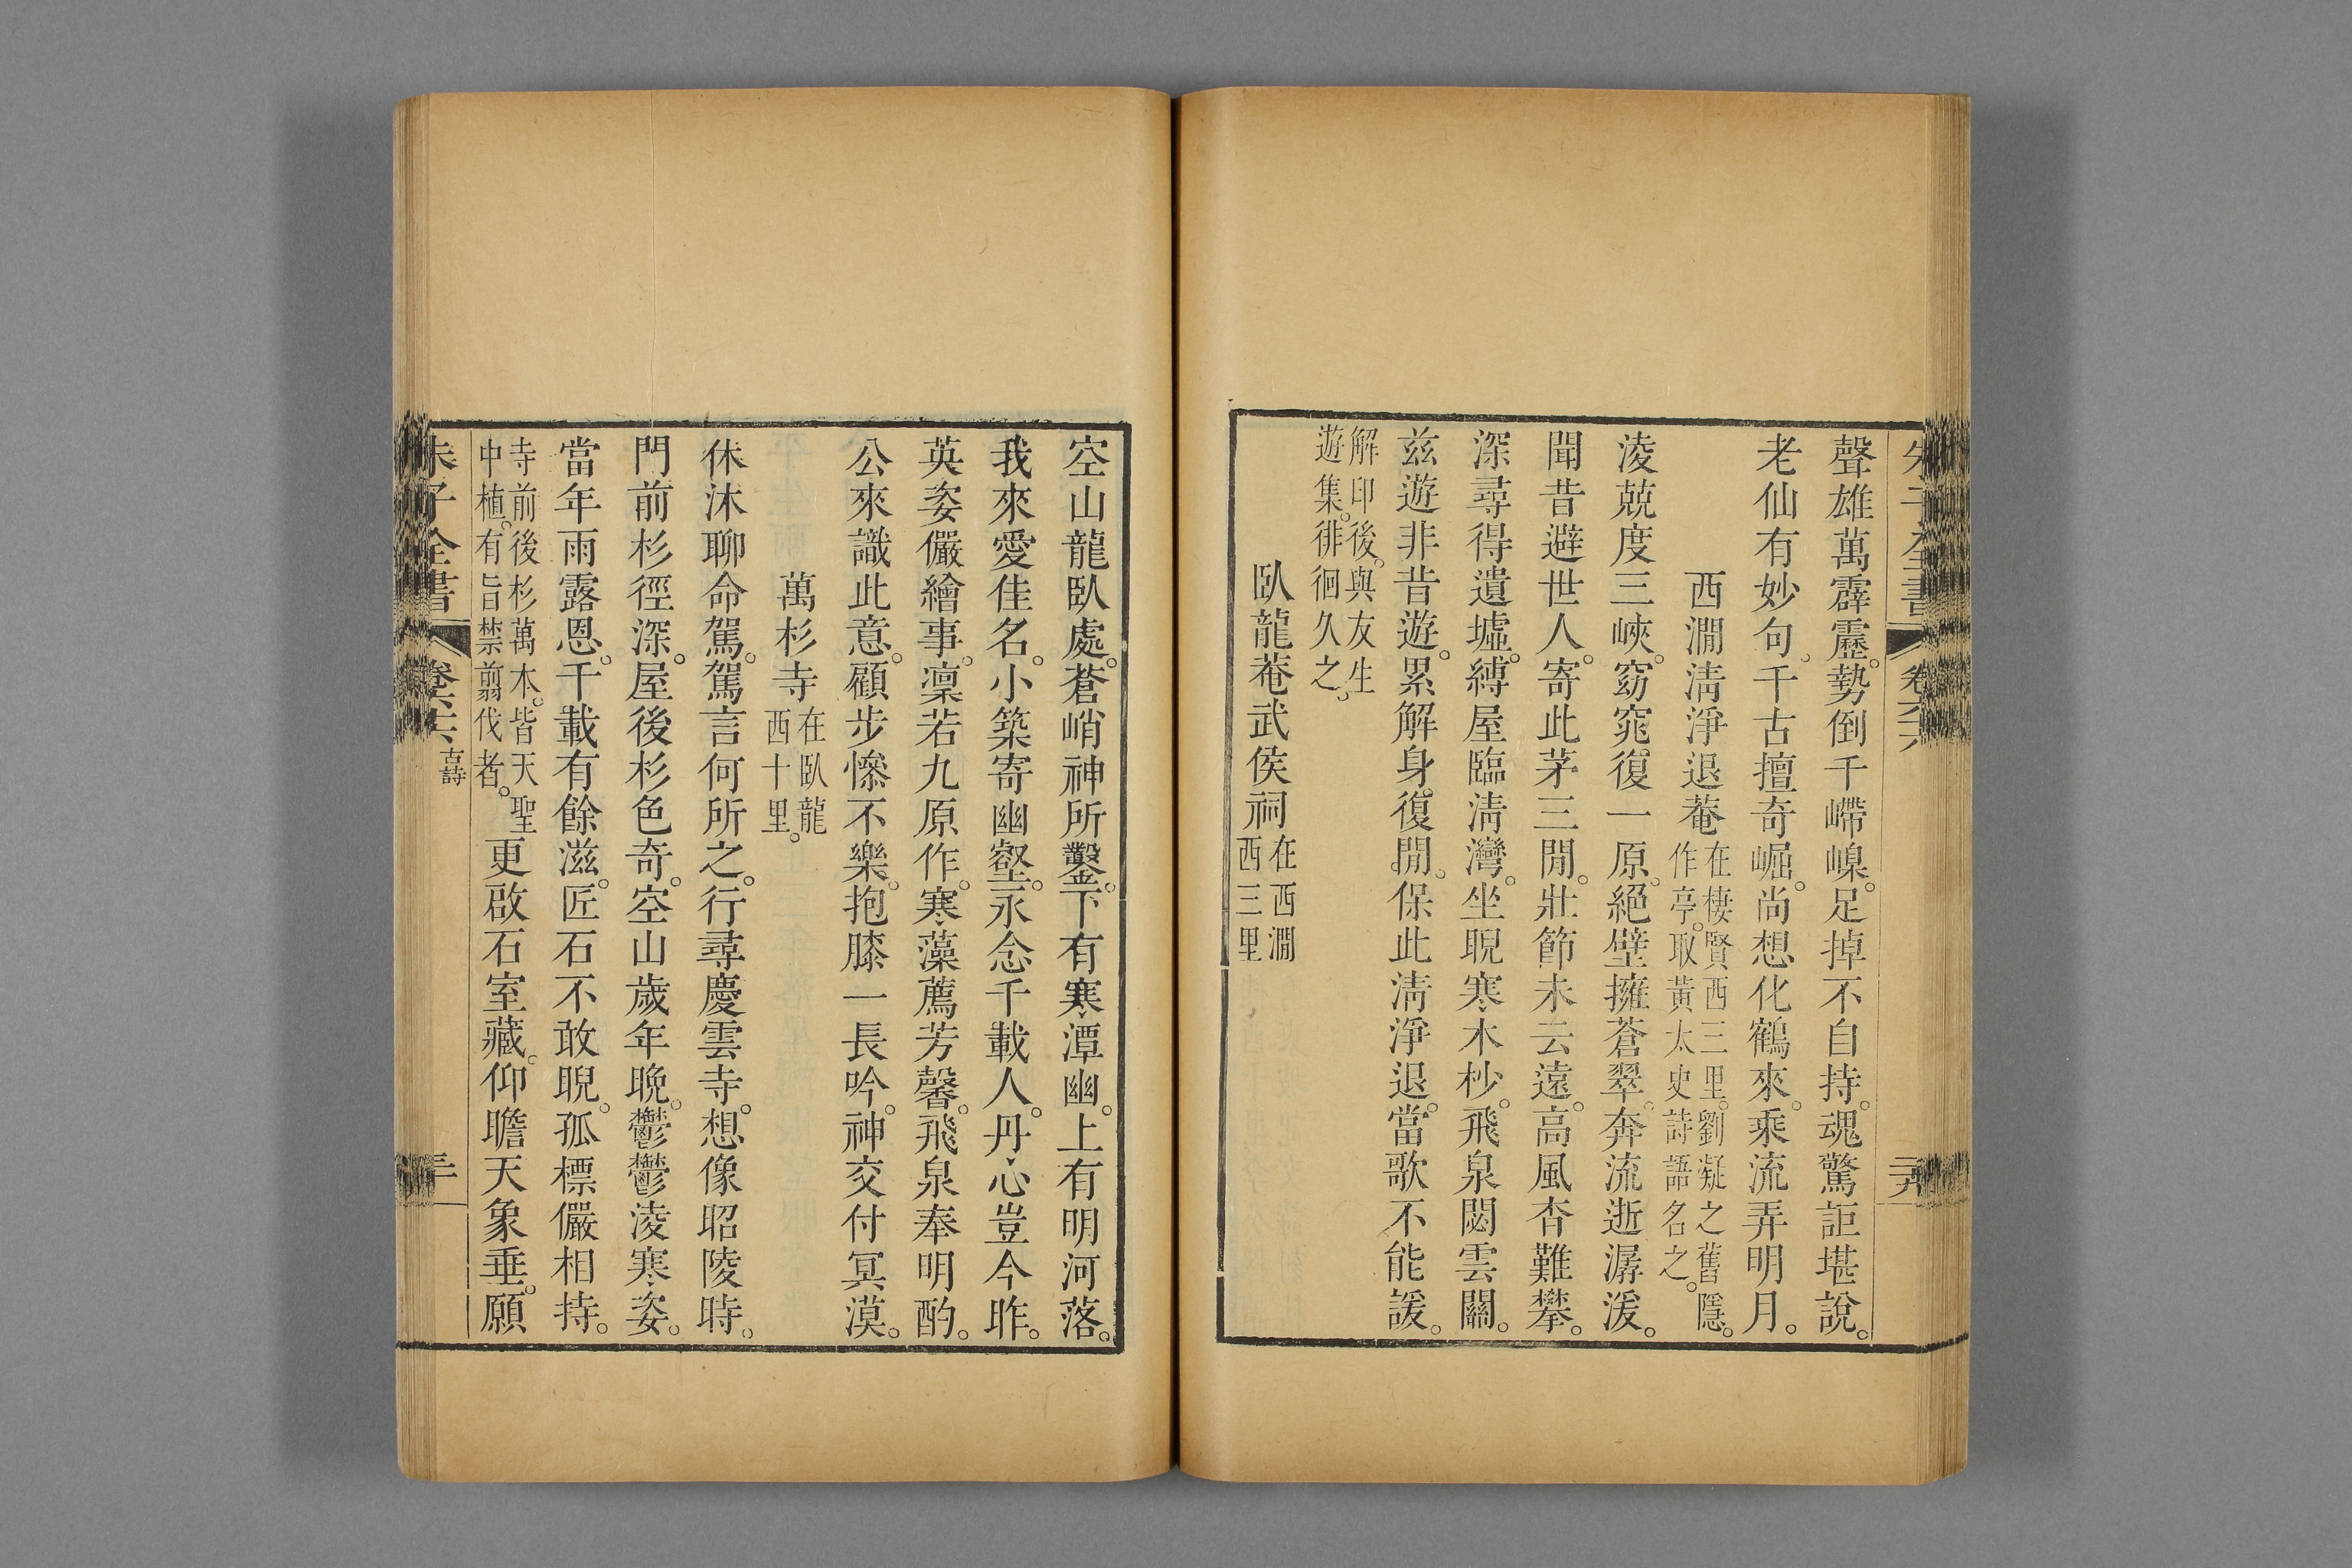 朱子全書 卷六六 二九
聲雄萬霹靂。勢倒千㠊嵲。足掉不自持。魂驚詎堪說。
老仙有妙句。千古擅奇崛。尚想化鶴來。乘流弄明月。
西澗清淨退菴 在棲賢西三里。劉凝之舊隱。
作亭。取黃太史詩語名之。
淩兢度三峽。窈窕復一原。絕壁擁蒼翠。奔流逝潺湲。
聞昔避世人。寄此茅三閒。壯節未云遠。高風杳難攀。
深尋得遺墟。縛屋臨清灣。坐睨寒木杪。飛泉閟雲關。
茲遊非昔遊。累解身復閒。保此清淨退。當歌不能諼。
解印後。與友生
遊集。徘徊久之。
臥龍菴武侯祠 在西澗
西三里
空山龍臥處。蒼峭神所鑿。下有寒潭幽。上有明河落。
我來愛佳名。小築寄幽壑。永念千載人。丹心豈今昨。
英姿儼繪事。凜若九原作。寒藻薦芳馨。飛泉奉明酌。
公來識此意。顧步慘不樂。抱膝一長吟。神交付冥漠。
萬杉寺 在臥龍
西十里。
休沐聊命駕。駕言何所之。行尋慶雲寺。想像昭陵時。
門前杉徑深。屋後杉色奇。空山歲年晚。鬱鬱淩寒姿。
當年雨露恩。千載有餘滋。匠石不敢睨。孤標儼相持。
寺前後杉萬本。皆天聖
中植。有旨禁翦伐者。
更啟石室藏。仰瞻天象垂。願
朱子全書 卷六六 古詩 三十